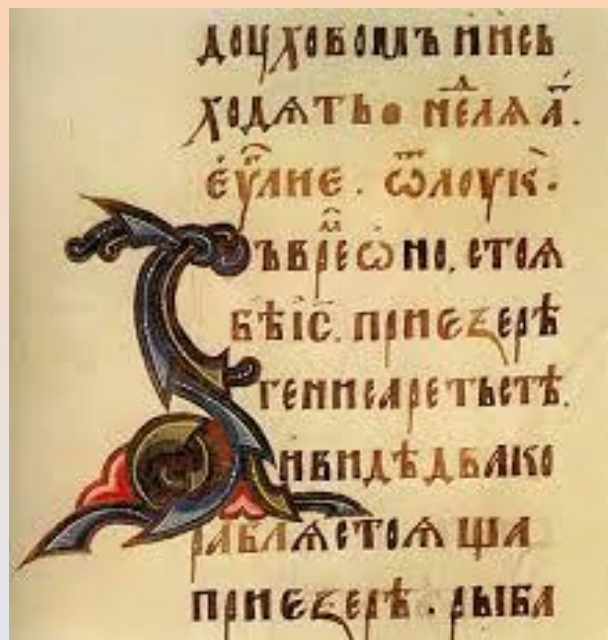 доуховомъ инсь
ходѧть · нелѧ а҃.
еѵ҃лие. ѿ лоук·
ъ врем҃ ѡно. стоѧ
бѣ іс҃. при езерѣ
генисаретьстѣ.
и видѣ два ко
раблѧ стоѧ ща
при езерѣ. рыба